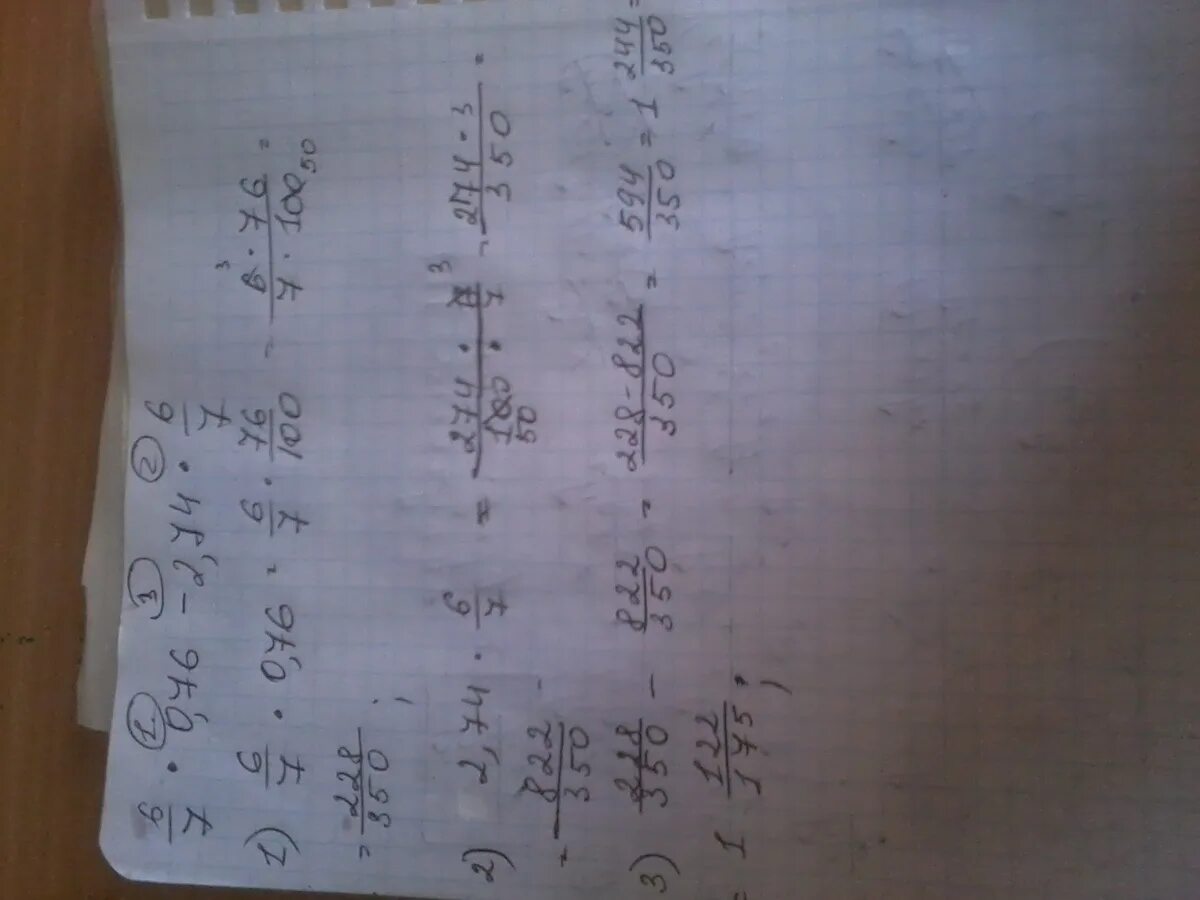 ① ③ ②
6/7 · 0,76 - 2,74 · 6/7
1) 6/7 · 0,76 = 6/7 · 76/100 = 6³ · 76 / 7 · 100₅₀ =
= 228/350 ;
2) 2,74 · 6/7 = 274 · 6³ / 100₅₀ · 7 = 274 · 3 / 350 =
= 822/350
3) 228/350 - 822/350 = 228 - 822 / 350 = 594/350 = 1 244/350 =
= 1 122/175 ;